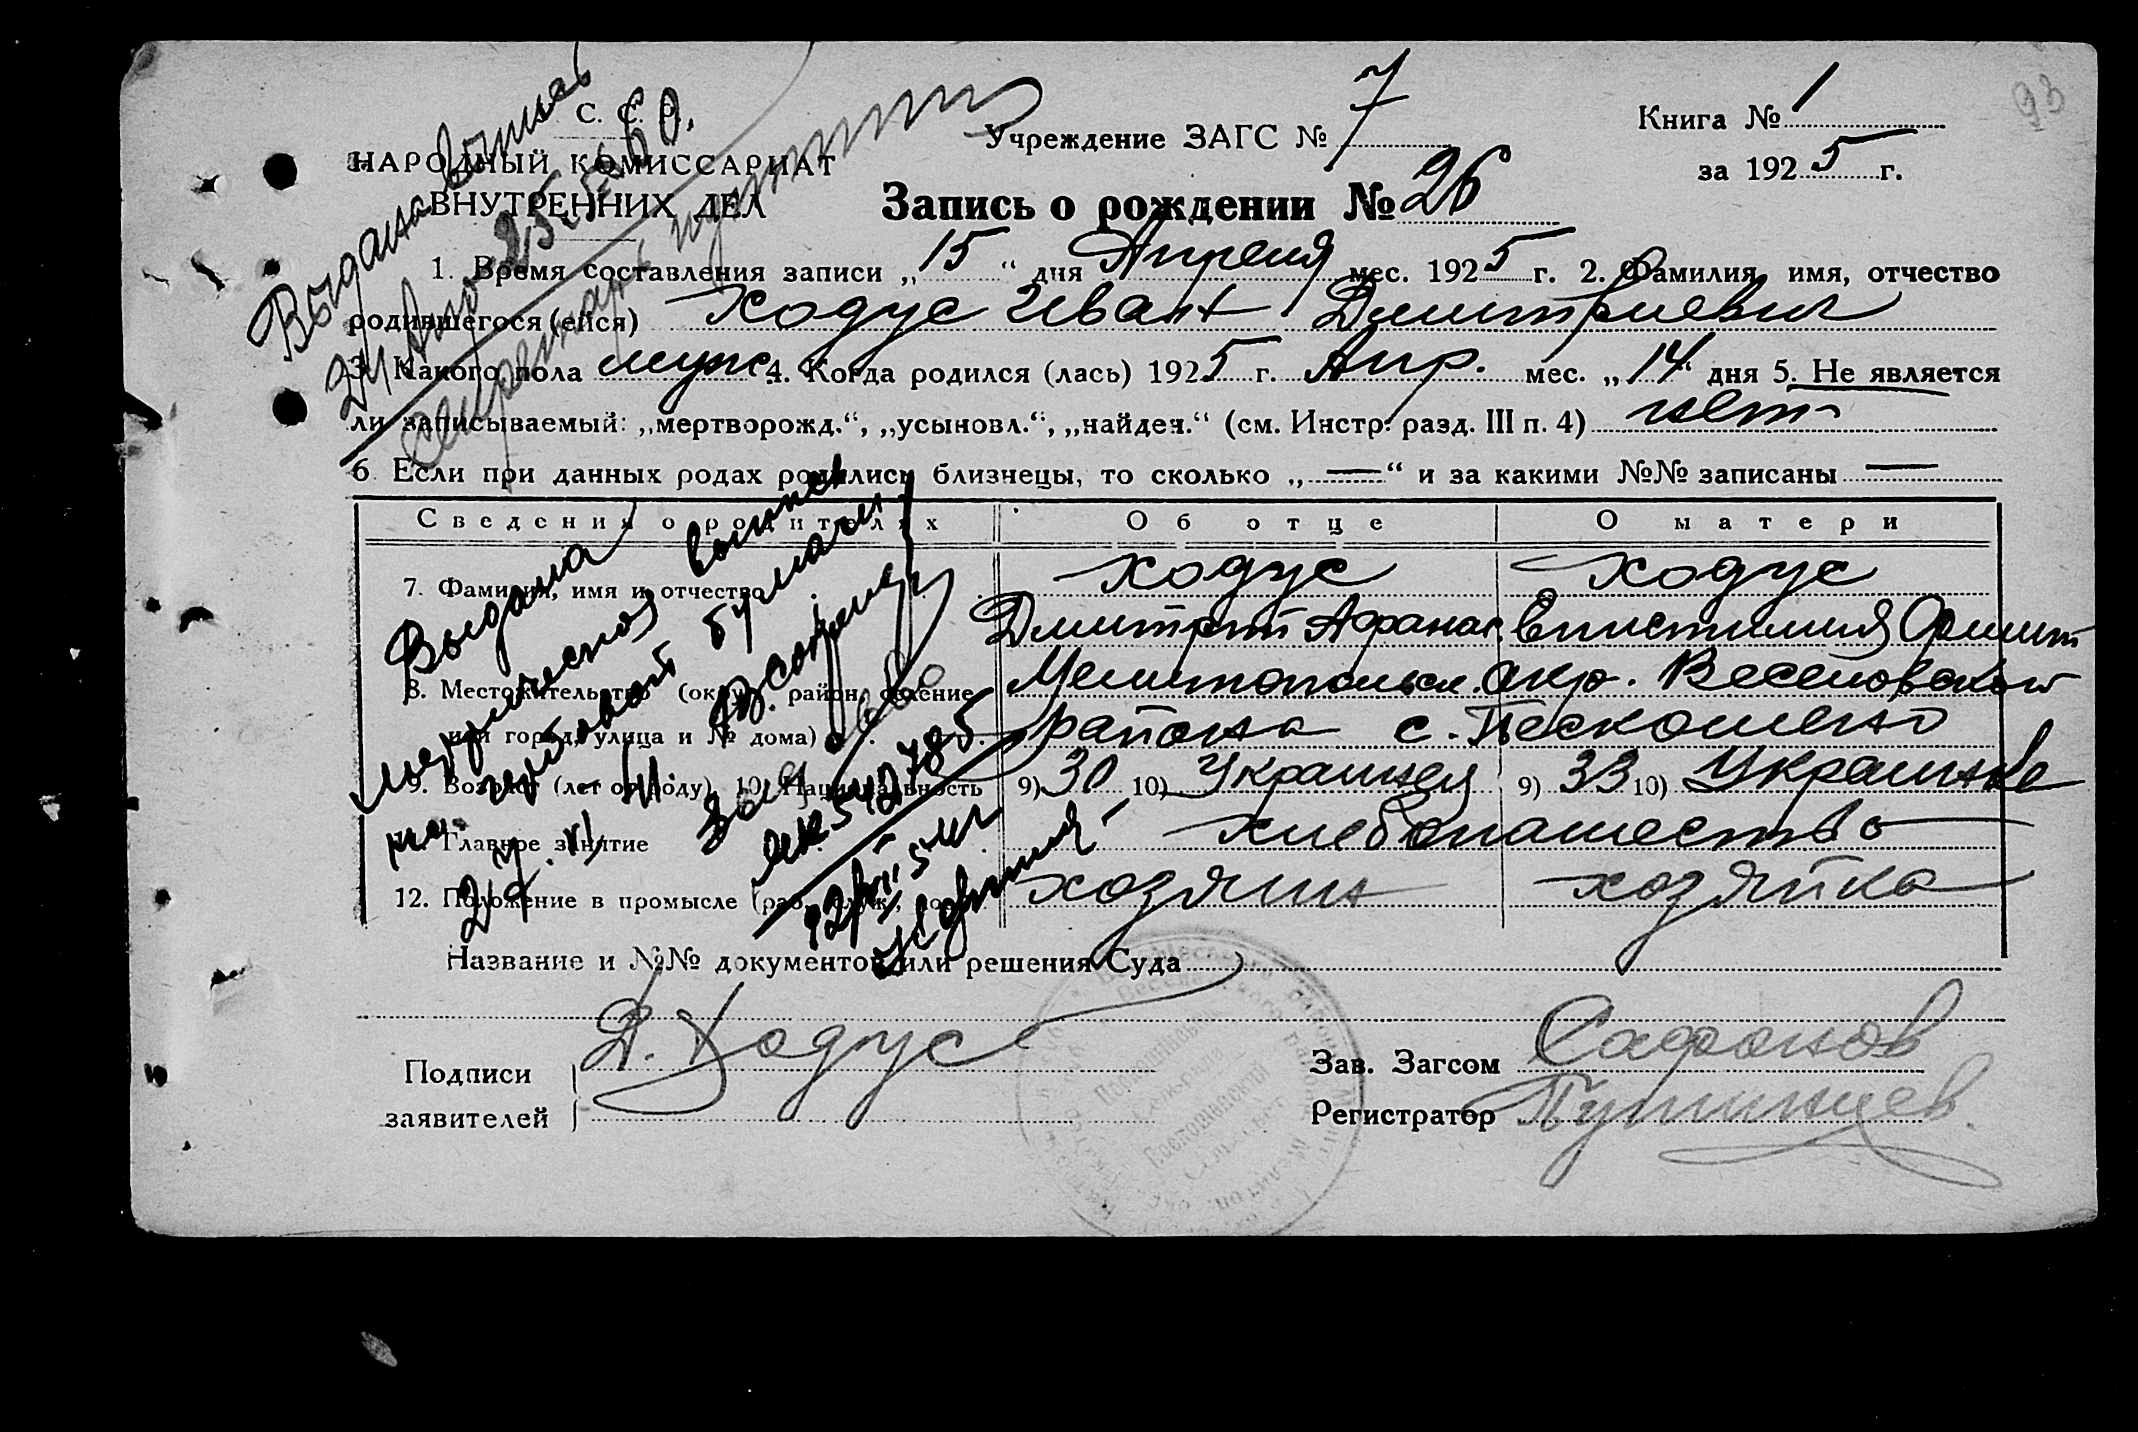 93
С. С. Р.
НАРОДНЫЙ КОМИССАРИАТ
ВНУТРЕННИХ ДЕЛ
Учреждение ЗАГС № 7
Книга № 1
за 1925 г.
Запись о рождении № 26
1. Время составления записи „15“ дня Апреля мес. 1925 г. 2. Фамилия, имя, отчество
родившегося (ейся) Ходус Иван Дмитриевич
3. Какого пола муж. 4. Когда родился (лась) 1925 г. Апр. мес. „14“ дня 5. Не является
ли записываемый: „мертворожд.“, „усыновл.“, „найден.“ (см. Инстр. разд. III п. 4) нет
6. Если при данных родах родились близнецы, то сколько „—“ и за какими №№ записаны —
Сведения о родителях Об отце О матери
7. Фамилия, имя и отчество Ходус Ходус
Дмитрий Афанас. Епистимия
8. Местожительство (округ, район, селение Мелитопольск. окр. Веселовского
или город, улица и № дома) района с. Пескошено
9. Возраст (лет от роду) 10. Национальность 9) 30 10) Украинец 9) 33 10) Украинка
11. Главное занятие хлебопашество
12. Положение в промысле хозяин хозяйка
Название и №№ документов или решения Суда
Подписи
заявителей
Д. Ходус
Зав. Загсом Сафонов
Регистратор
Выдана выпись
25.5.60.
Выдана
выпись
24.XI